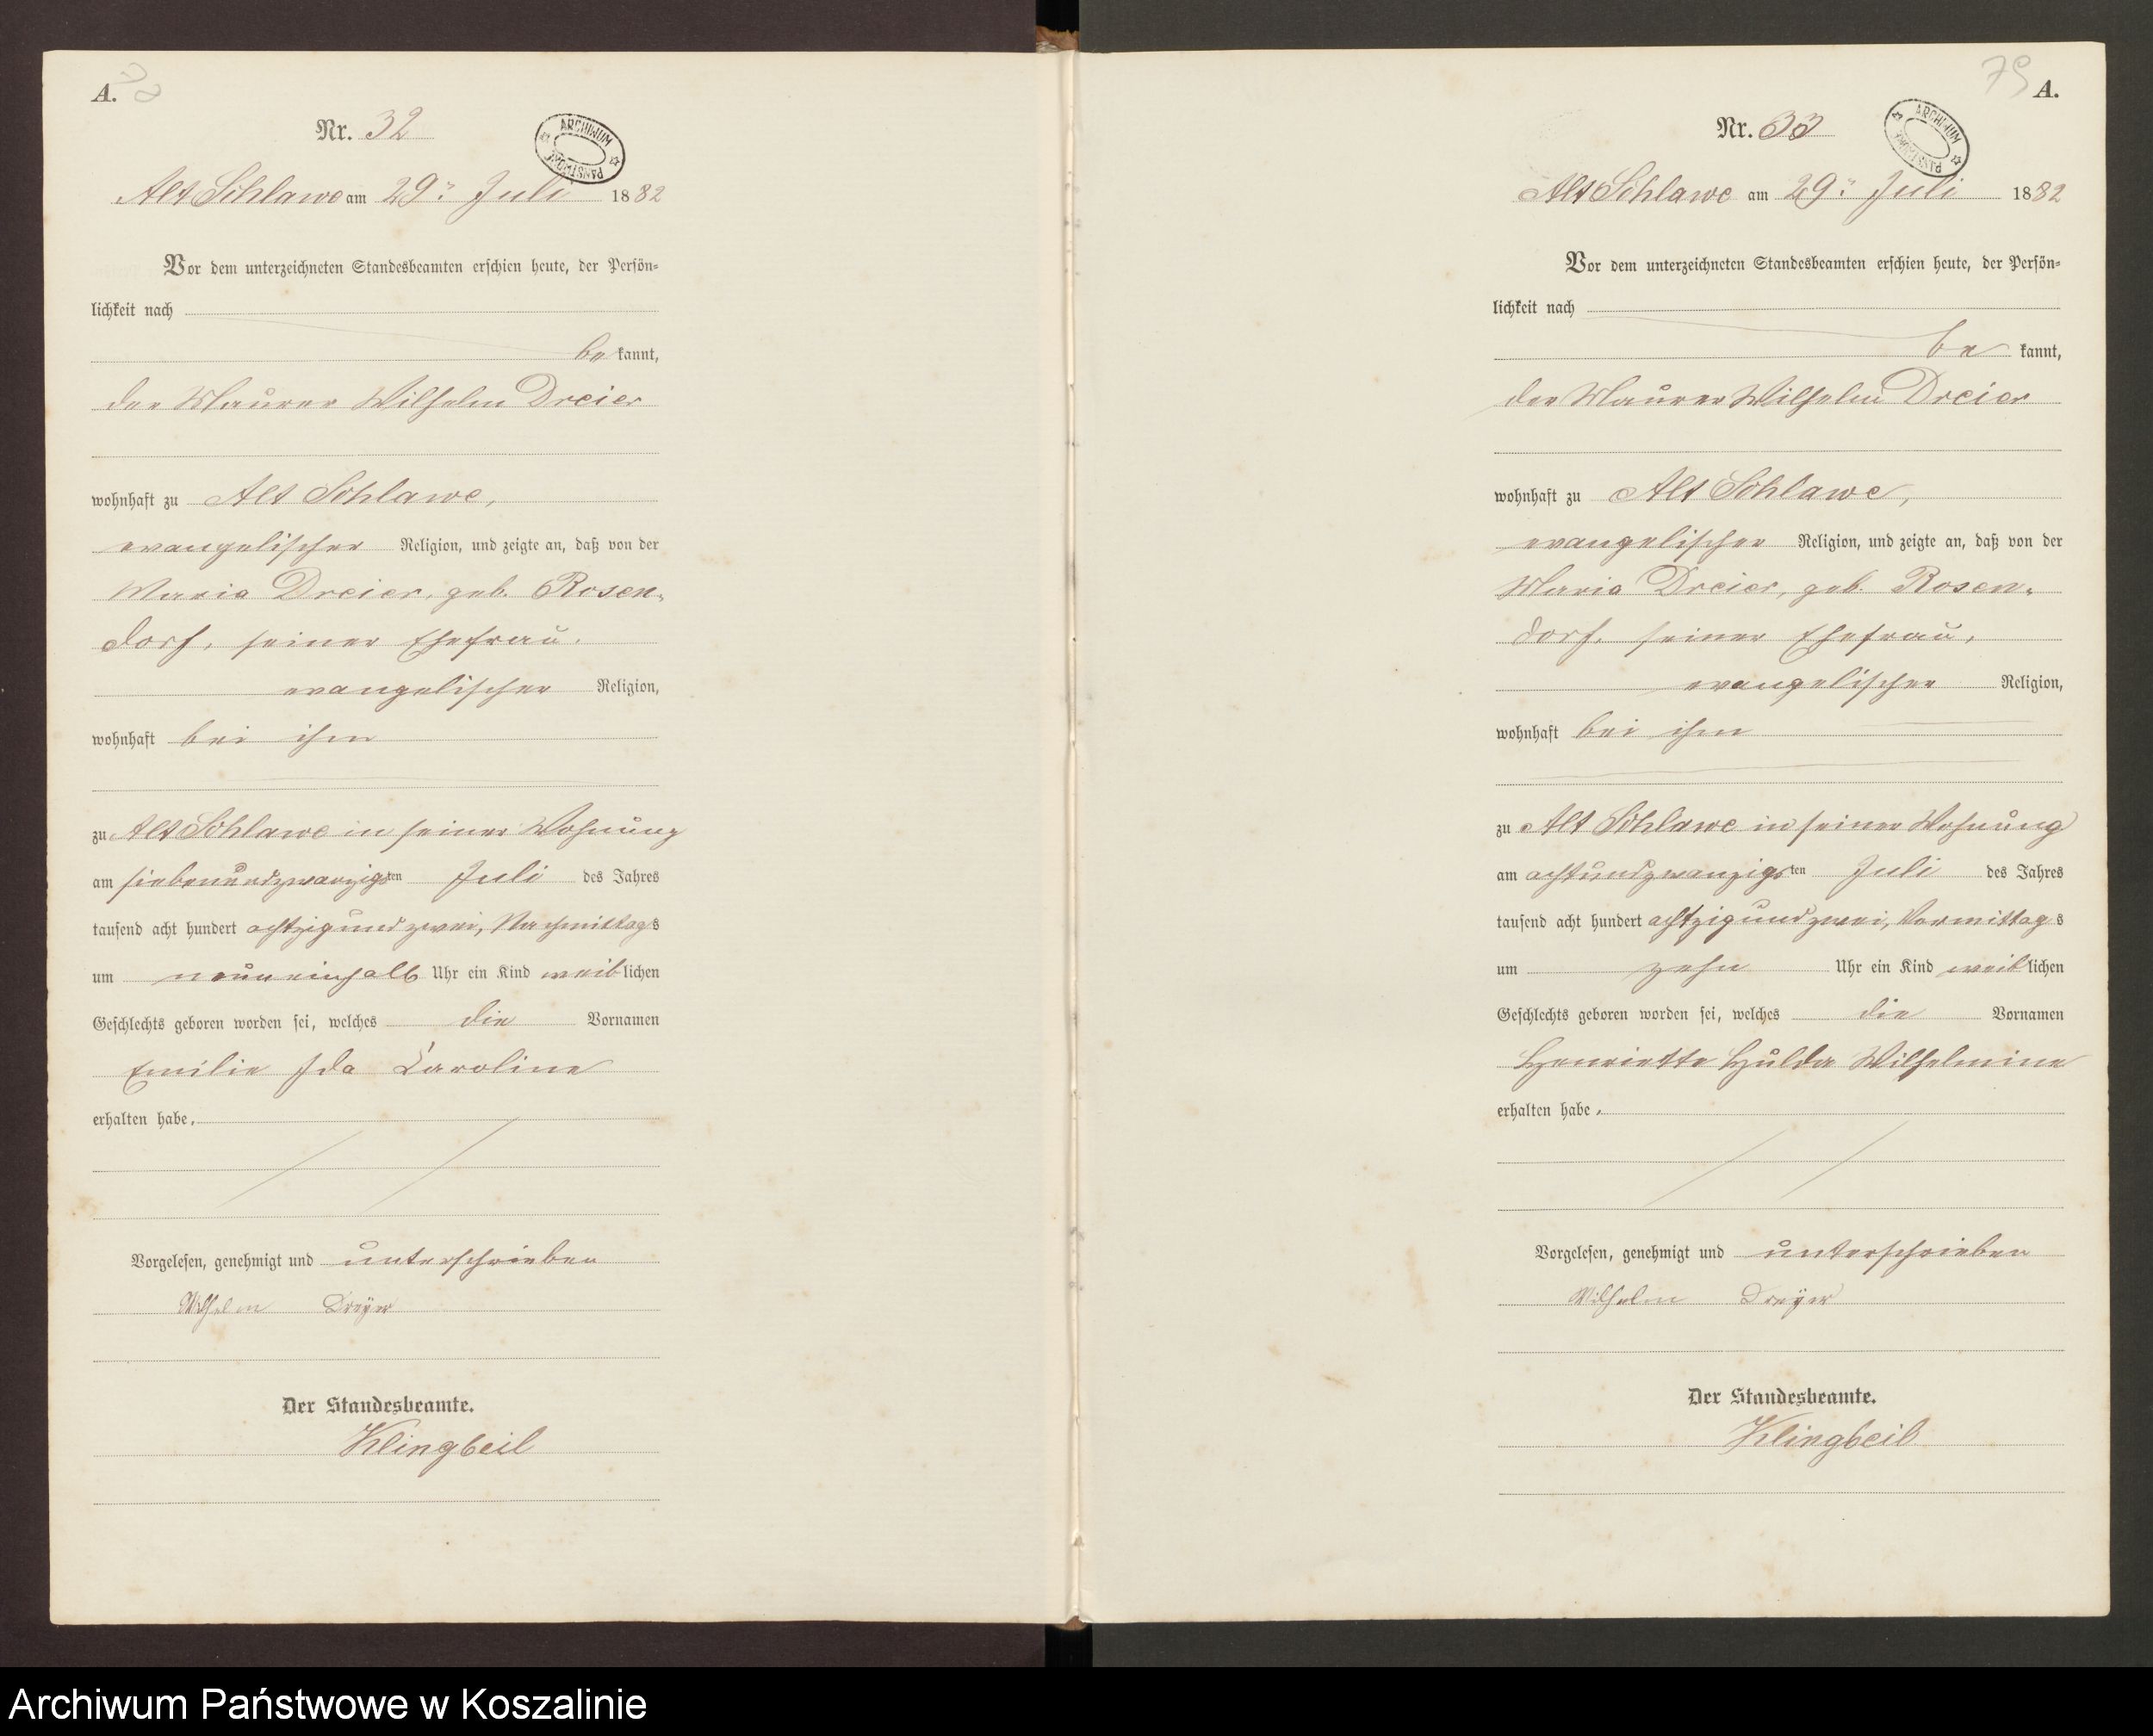 A.
Nr. 32
ARCHIWUM PAŃSTWOWE
Alt Schlawe am 29ᵗᵉⁿ Juli 1882
Vor dem unterzeichneten Standesbeamten erschien heute, der Persön-
lichkeit nach
be kannt,
der Maurer Wilhelm Dreier
wohnhaft zu Alt Schlawe,
evangelischer Religion, und zeigte an, daß von der
Maria Dreier, geb. Rosen-
dorf, seiner Ehefrau,
evangelischer Religion,
wohnhaft bei ihm
zu Alt Schlawe in seiner Wohnung
am siebenundzwanzigsten Juli des Jahres
tausend acht hundert achtzigundzwei, Nachmittags
um neuneinhalb Uhr ein Kind weiblichen
Geschlechts geboren worden sei, welches die Vornamen
Emilie Ida Caroline
erhalten habe.
Vorgelesen, genehmigt und unterschrieben
Wilhelm Dreÿer
Der Standesbeamte.
Klingbeil
79 A.
Nr. 33
ARCHIWUM PAŃSTWOWE
Alt Schlawe am 29ᵗᵉⁿ Juli 1882
Vor dem unterzeichneten Standesbeamten erschien heute, der Persön-
lichkeit nach
be kannt,
der Maurer Wilhelm Dreier
wohnhaft zu Alt Schlawe,
evangelischer Religion, und zeigte an, daß von der
Maria Dreier, geb. Rosen-
dorf, seiner Ehefrau,
evangelischer Religion,
wohnhaft bei ihm
zu Alt Schlawe in seiner Wohnung
am achtundzwanzigsten Juli des Jahres
tausend acht hundert achtzigundzwei, Vormittags
um zehn Uhr ein Kind weiblichen
Geschlechts geboren worden sei, welches die Vornamen
Henriette Hulda Wilhelmine
erhalten habe.
Vorgelesen, genehmigt und unterschrieben
Wilhelm Dreÿer
Der Standesbeamte.
Klingbeil
Archiwum Państwowe w Koszalinie